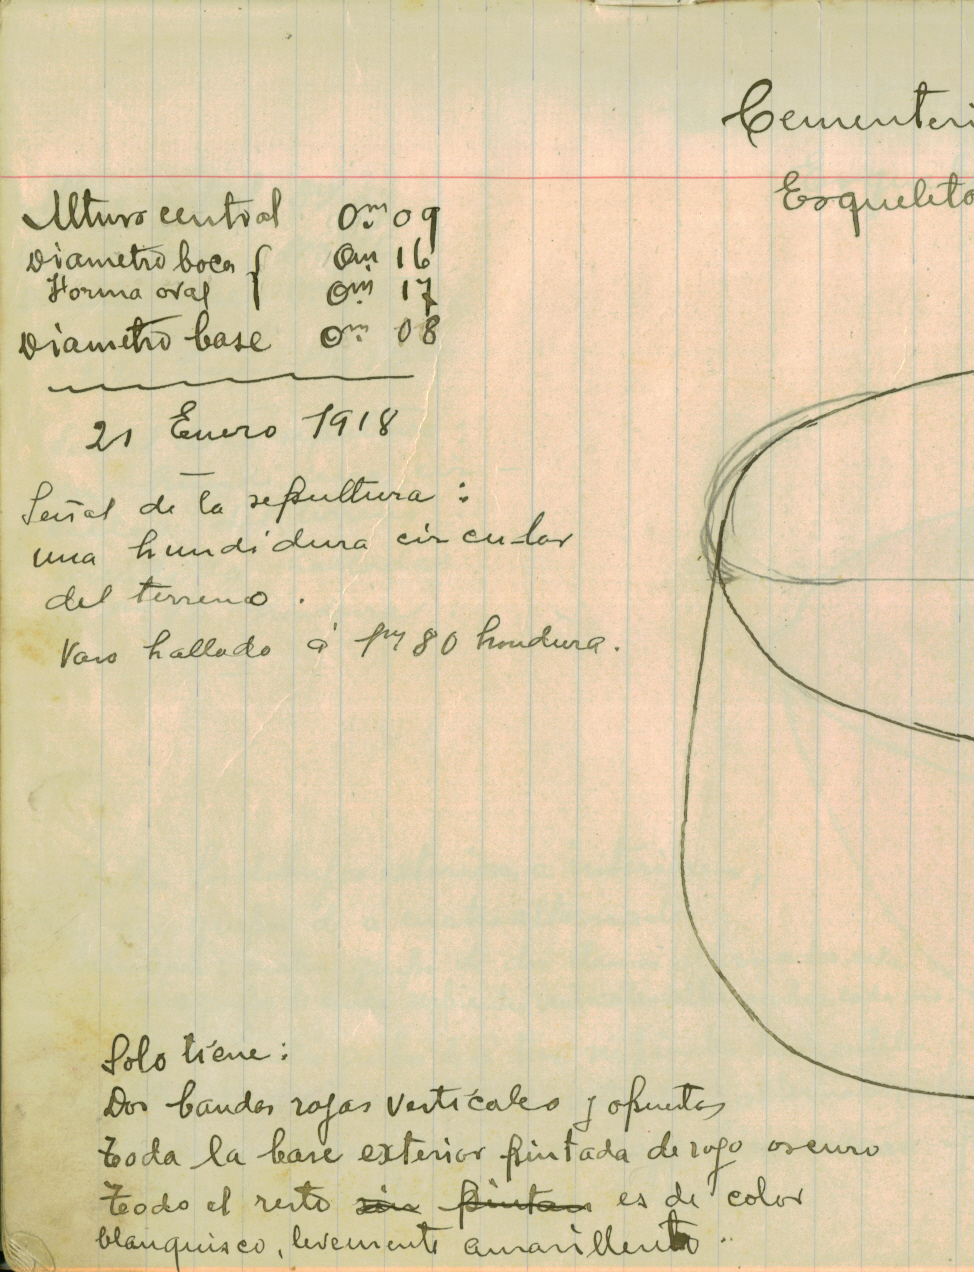 Cementeri
Esqueleto
Altura central 0m 09
Diametro boca { 0m 16
Forma oval { 0m 17
Diametro base 0m 08
21 Enero 1918
Señal de la sepultura :
una hundidura circular
del terreno .
Vaso hallado á 1m 80 hondura .
Solo tiene :
Dos bandas rojas verticales y opuestas
Toda la base exterior pintada de rojo oscuro
Todo el resto sin pintar es de color
blanquisco, levemente amarillento ..